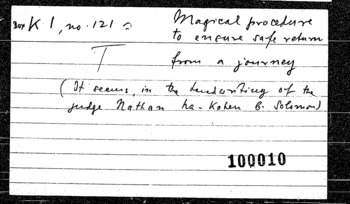 Box K 1, no. 121 Magical procedure
to ensure safe return
T from a journey
(It seems, in the handwriting of the
judge Nathan ha-Kohen b. Solomon)
100010